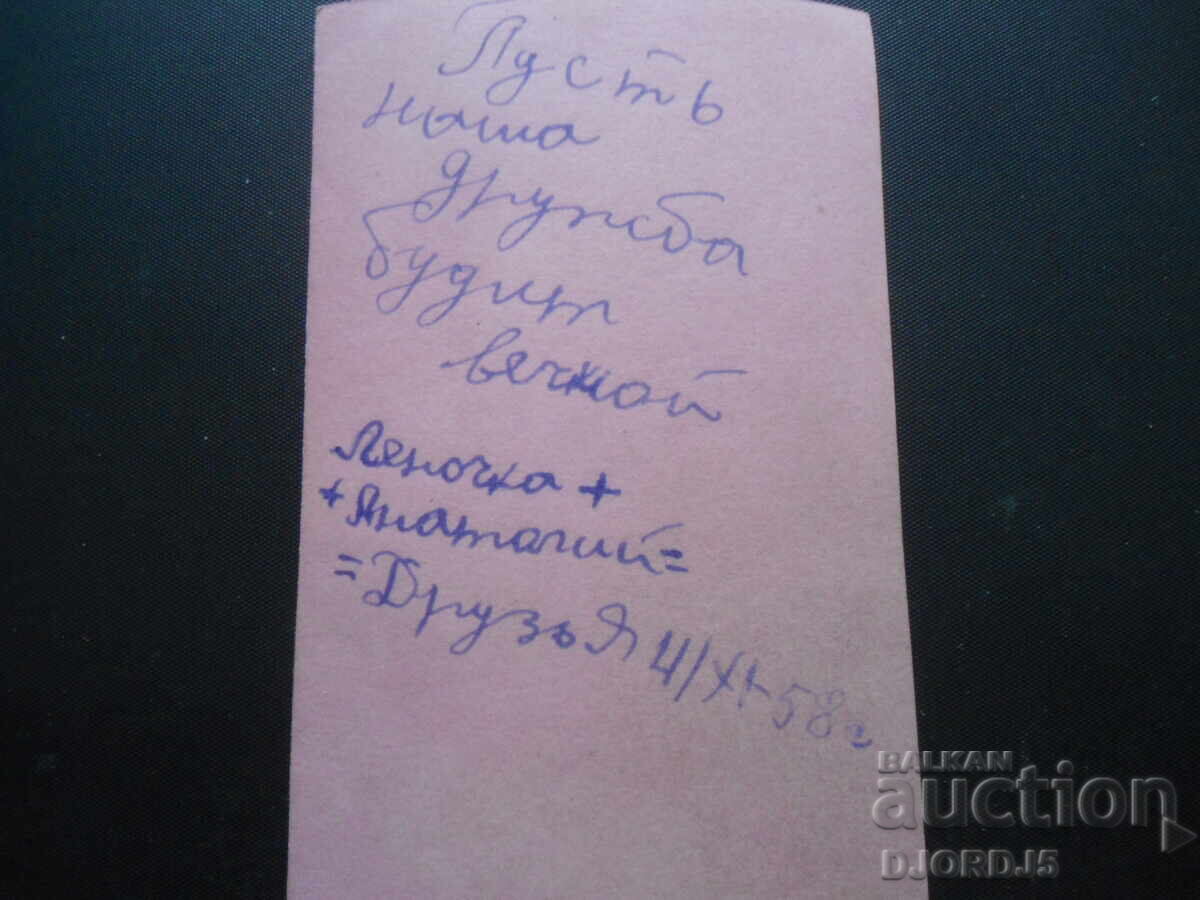 Пусть
наша
дружба
будит
вечной
Леночка +
+ Анатолий =
= ДрузьЯ 4/XI-58г
BALKAN
auction
DJORDJ5